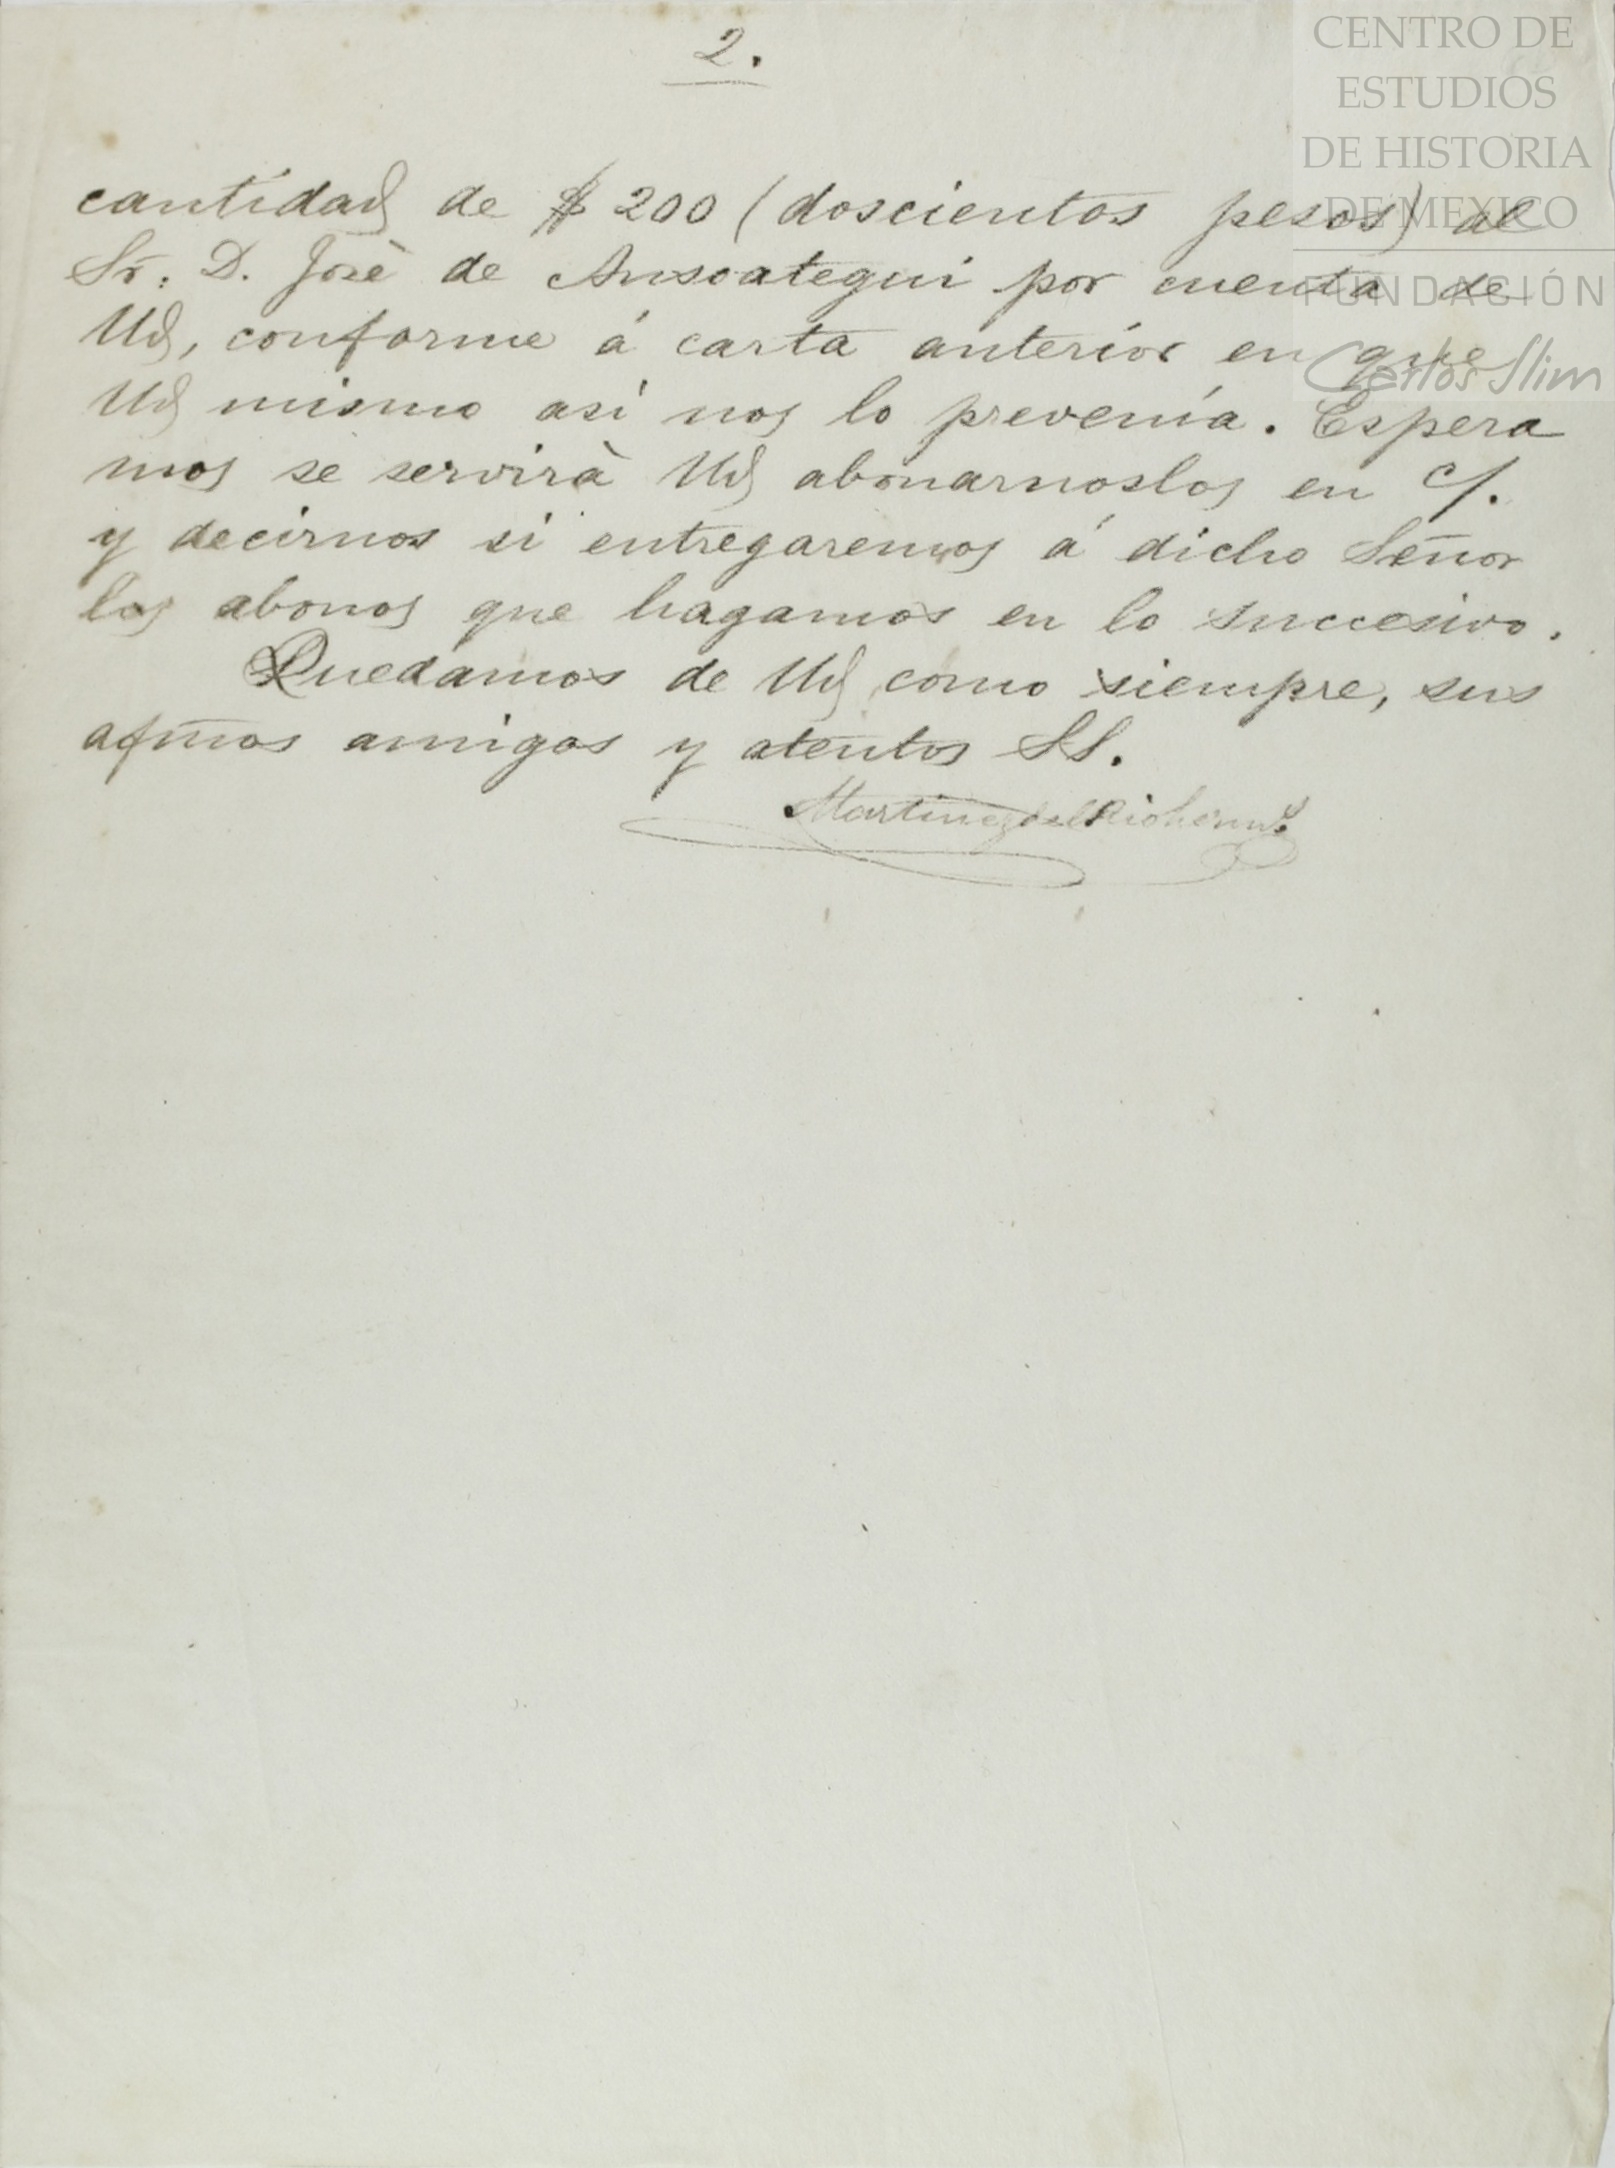 2.
CENTRO DE
ESTUDIOS
DE HISTORIA
DE MEXICO
FUNDACIÓN
Carlos Slim
cantidad de $200 (doscientos pesos) al
Sr. D. José de Ansoategui por cuenta de
Ud, conforme á carta anterior en que
Ud mismo asi nos lo prevenía. Espera
mos se servirà Ud abonarnoslos en c/.
y decirnos si entregaremos á dicho Señor
los abonos que hagamos en lo succesivo.
Quedamos de Ud como siempre, sus
afmos amigos y atentos SS.
Martinez del Rio herms